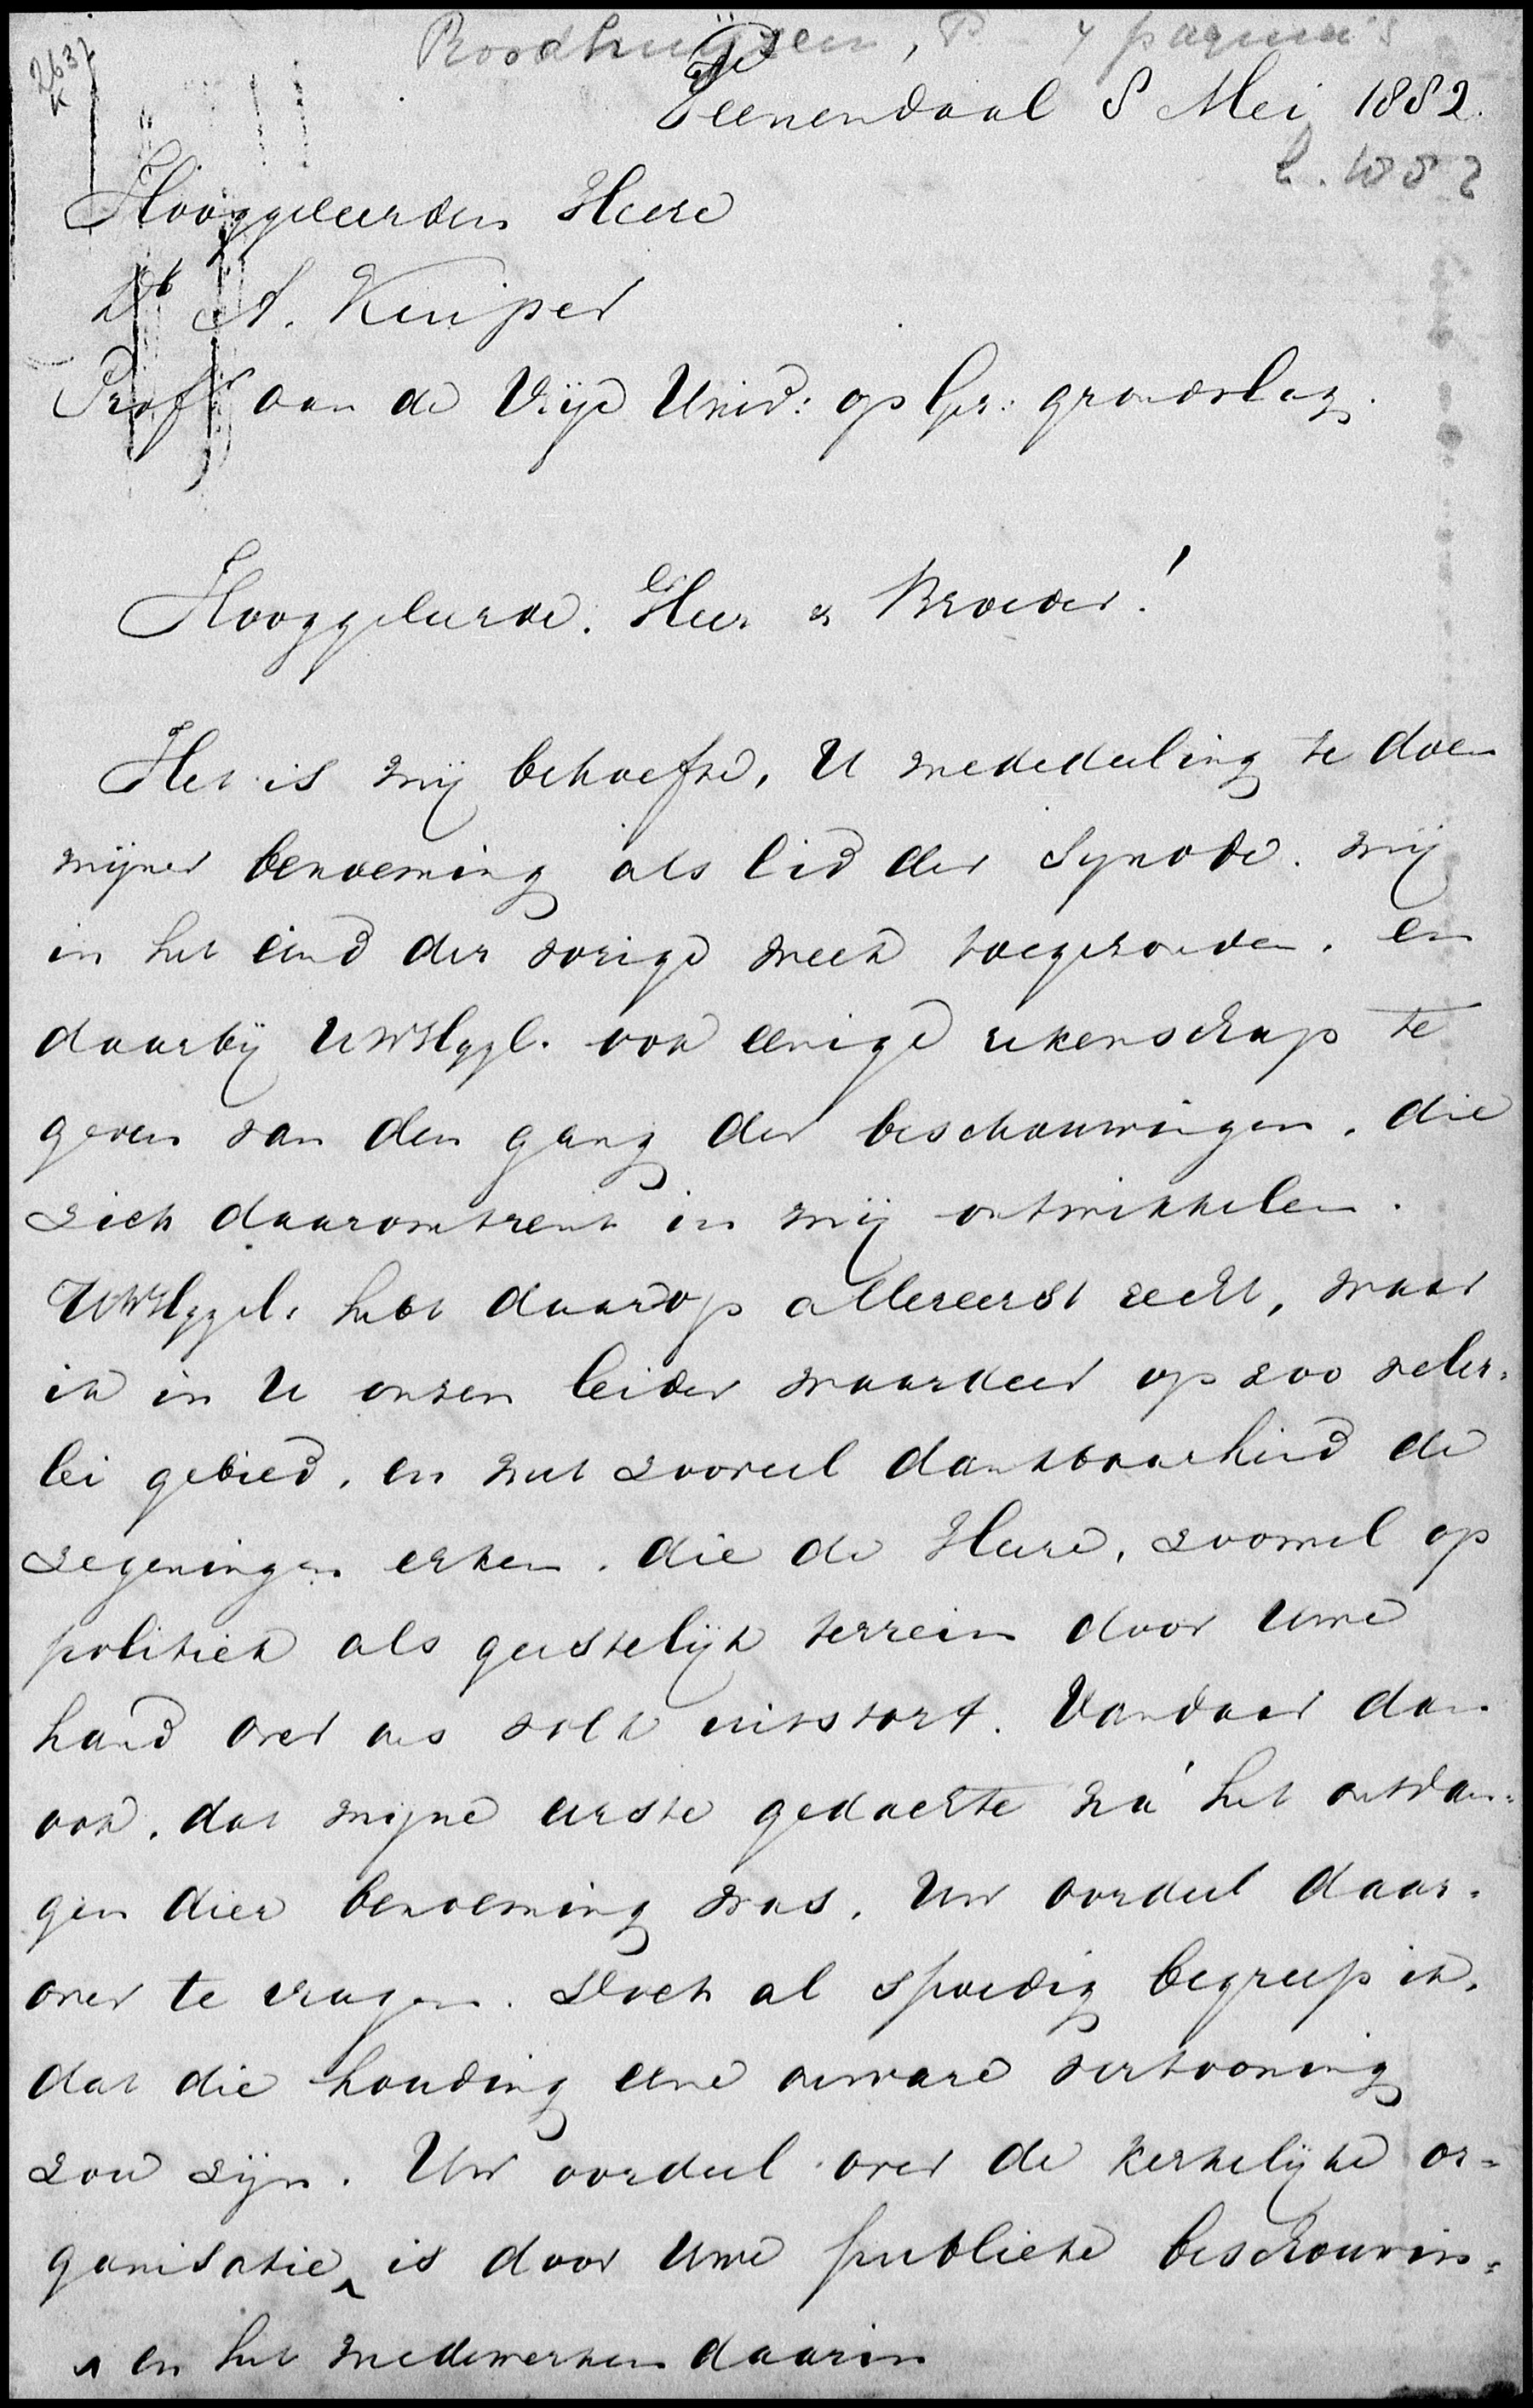 2637
K
Roodhuijzen, P 4 pagina's
Veenendaal 8 Mei 1882.
l. 1882
Hooggeleerden Heere
Dr A. Kuiper
Profr aan de Vrije Univ: op Ger: grondslag.
Hooggeleerde Heer & Broeder!
Het is mij behoefte, U mededeeling te doen
mijner benoeming als lid der Synode. mij
in het eind der vorige week toegezonden. en
daarbij UWHggl. ook eenige rekenschap te
geven van den gang der beschouwingen, die
zich daaromtrent in mij ontwikkelen.
UWHggel. hebt daarop allereerst recht, waar
ik in U onzen leider waardeer op zoo veler-
lei gebied, en met zooveel dankbaarheid de
zegeningen erken, die de Heere, zoowel op
politiek als geestelijk terrein door Uwe
hand over ons volk uitstort. Vandaar dan
ook, dat mijne eerste gedachte ná het ontvan-
gen dier benoeming was, Uw oordeel daar-
over te vragen. Doch al spoedig begreep ik,
dat die houding eene onware vertooning
zou zijn. Uw oordeel over de kerkelijke or-
ganisatie ^ is door Uwe publieke beschouwin-
^ en het medewerken daarin